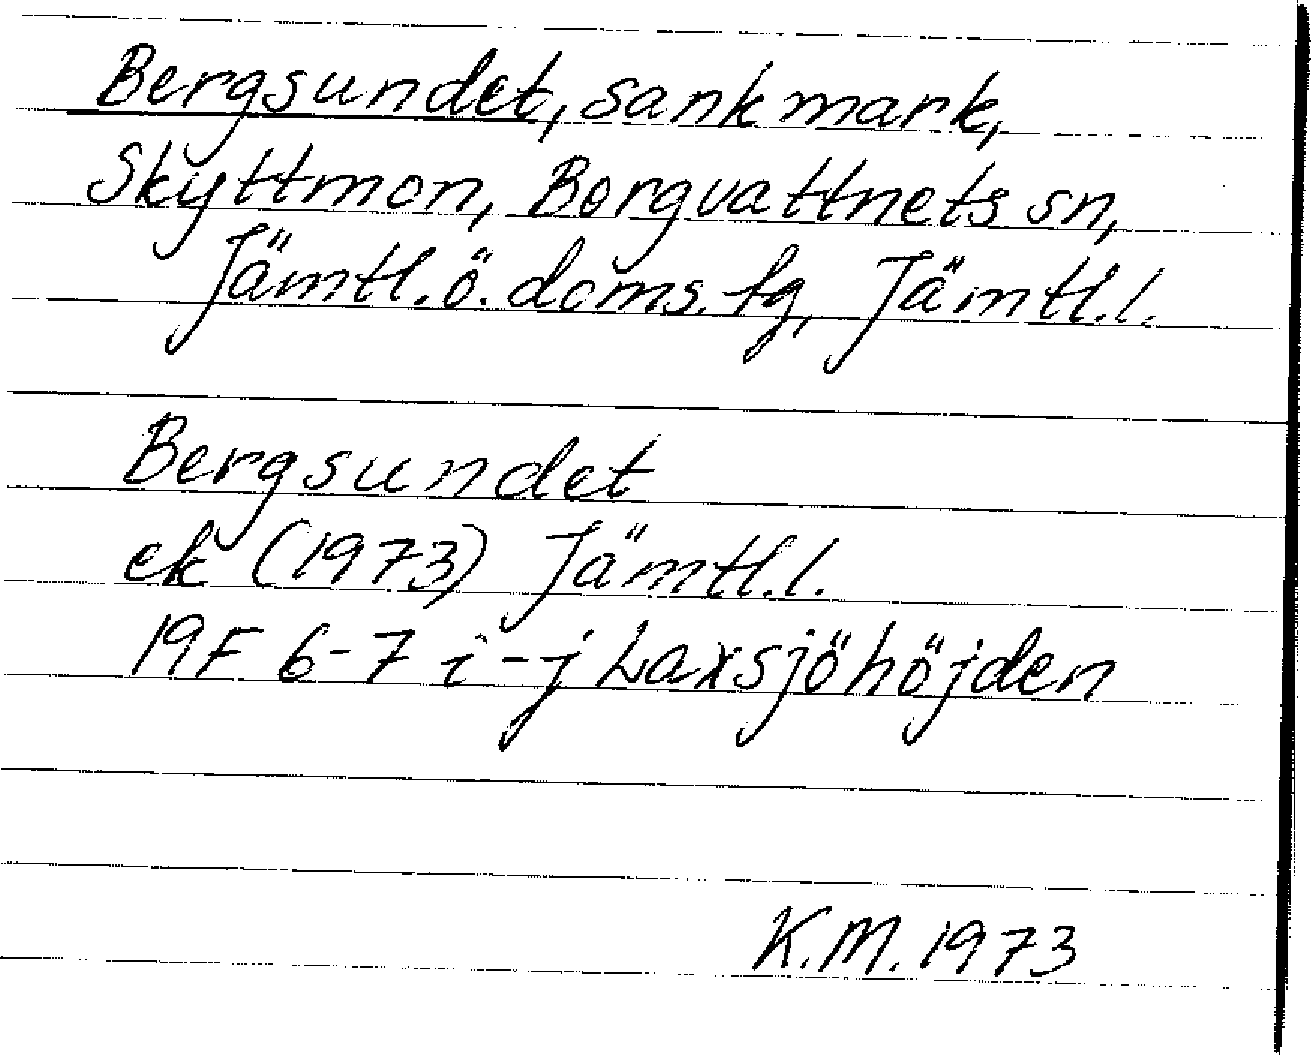 Bergsundet, sankmark,
Skyttmon, Borgvattnets sn,
Jämtl. ö. doms. tg, Jämtl. l.
Bergsundet
ek (1973) Jämtl. l.
19F 6-7 i-j Laxsjöhöjden
K.M. 1973